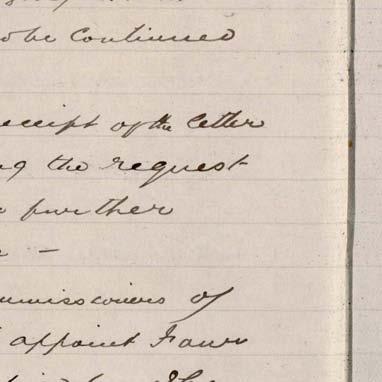 to be Continued
receipt of the letter
the request
further
–
ommissioners of
appoint Four